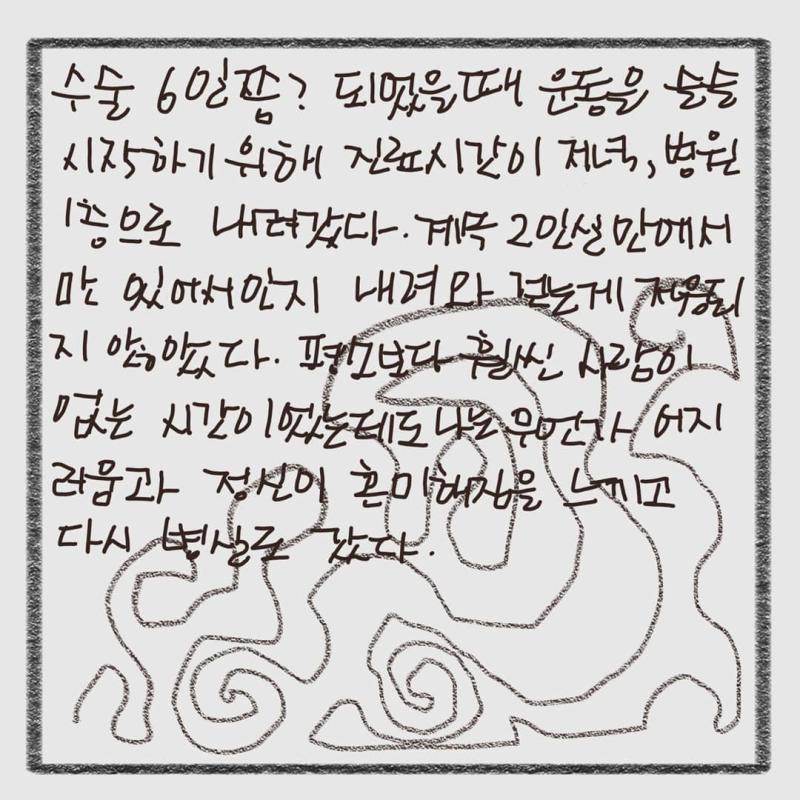 수술 6일쯤? 되었을때 운동을 슬슬
시작하기 위해 진료시간이 저녁, 병원
1층으로 내려갔다. 계속 2인실 안에서
만 있어서인지 내려와 걷는게 적응되
지 않았다. 평소보다 훨씬 사람이
없는 시간이었는데도 나는 무언가 어지
러움과 정신이 혼미해짐을 느끼고
다시 병실로 갔다.